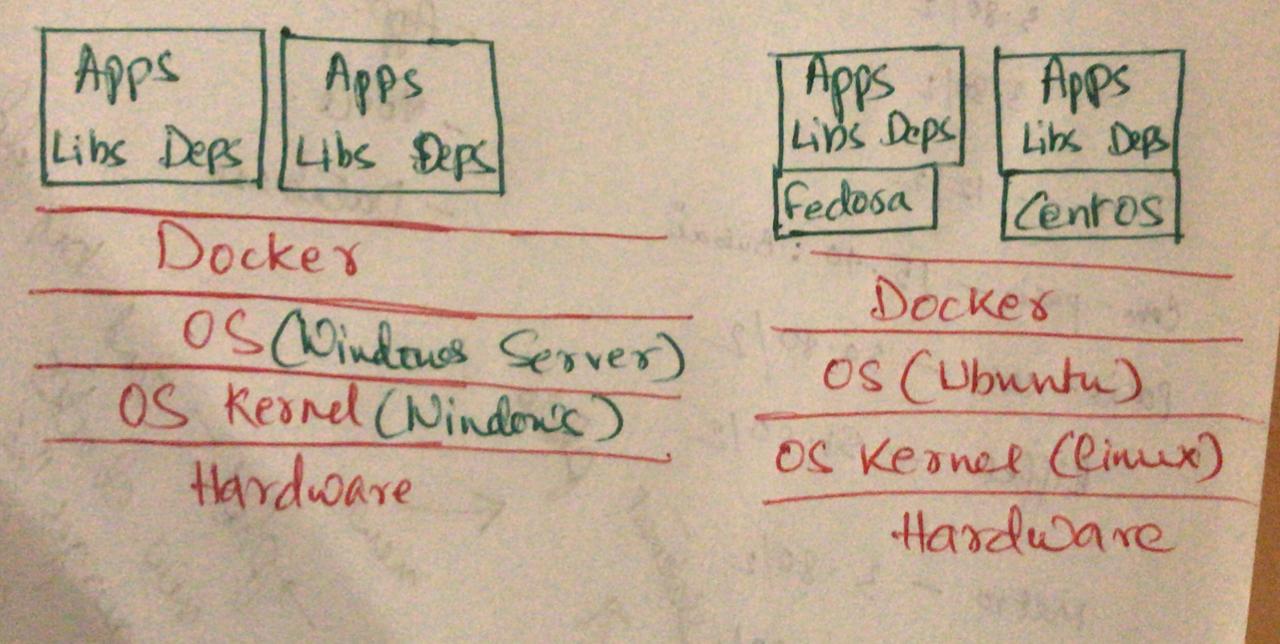 Apps
Libs Deps
Apps
Libs Deps
Docker
OS (Windows Server)
OS Kernel (Windows)
Hardware
Apps
Libs Deps
Fedora
Apps
Libs Deps
CentOS
Docker
OS (Ubuntu)
OS Kernel (linux)
Hardware